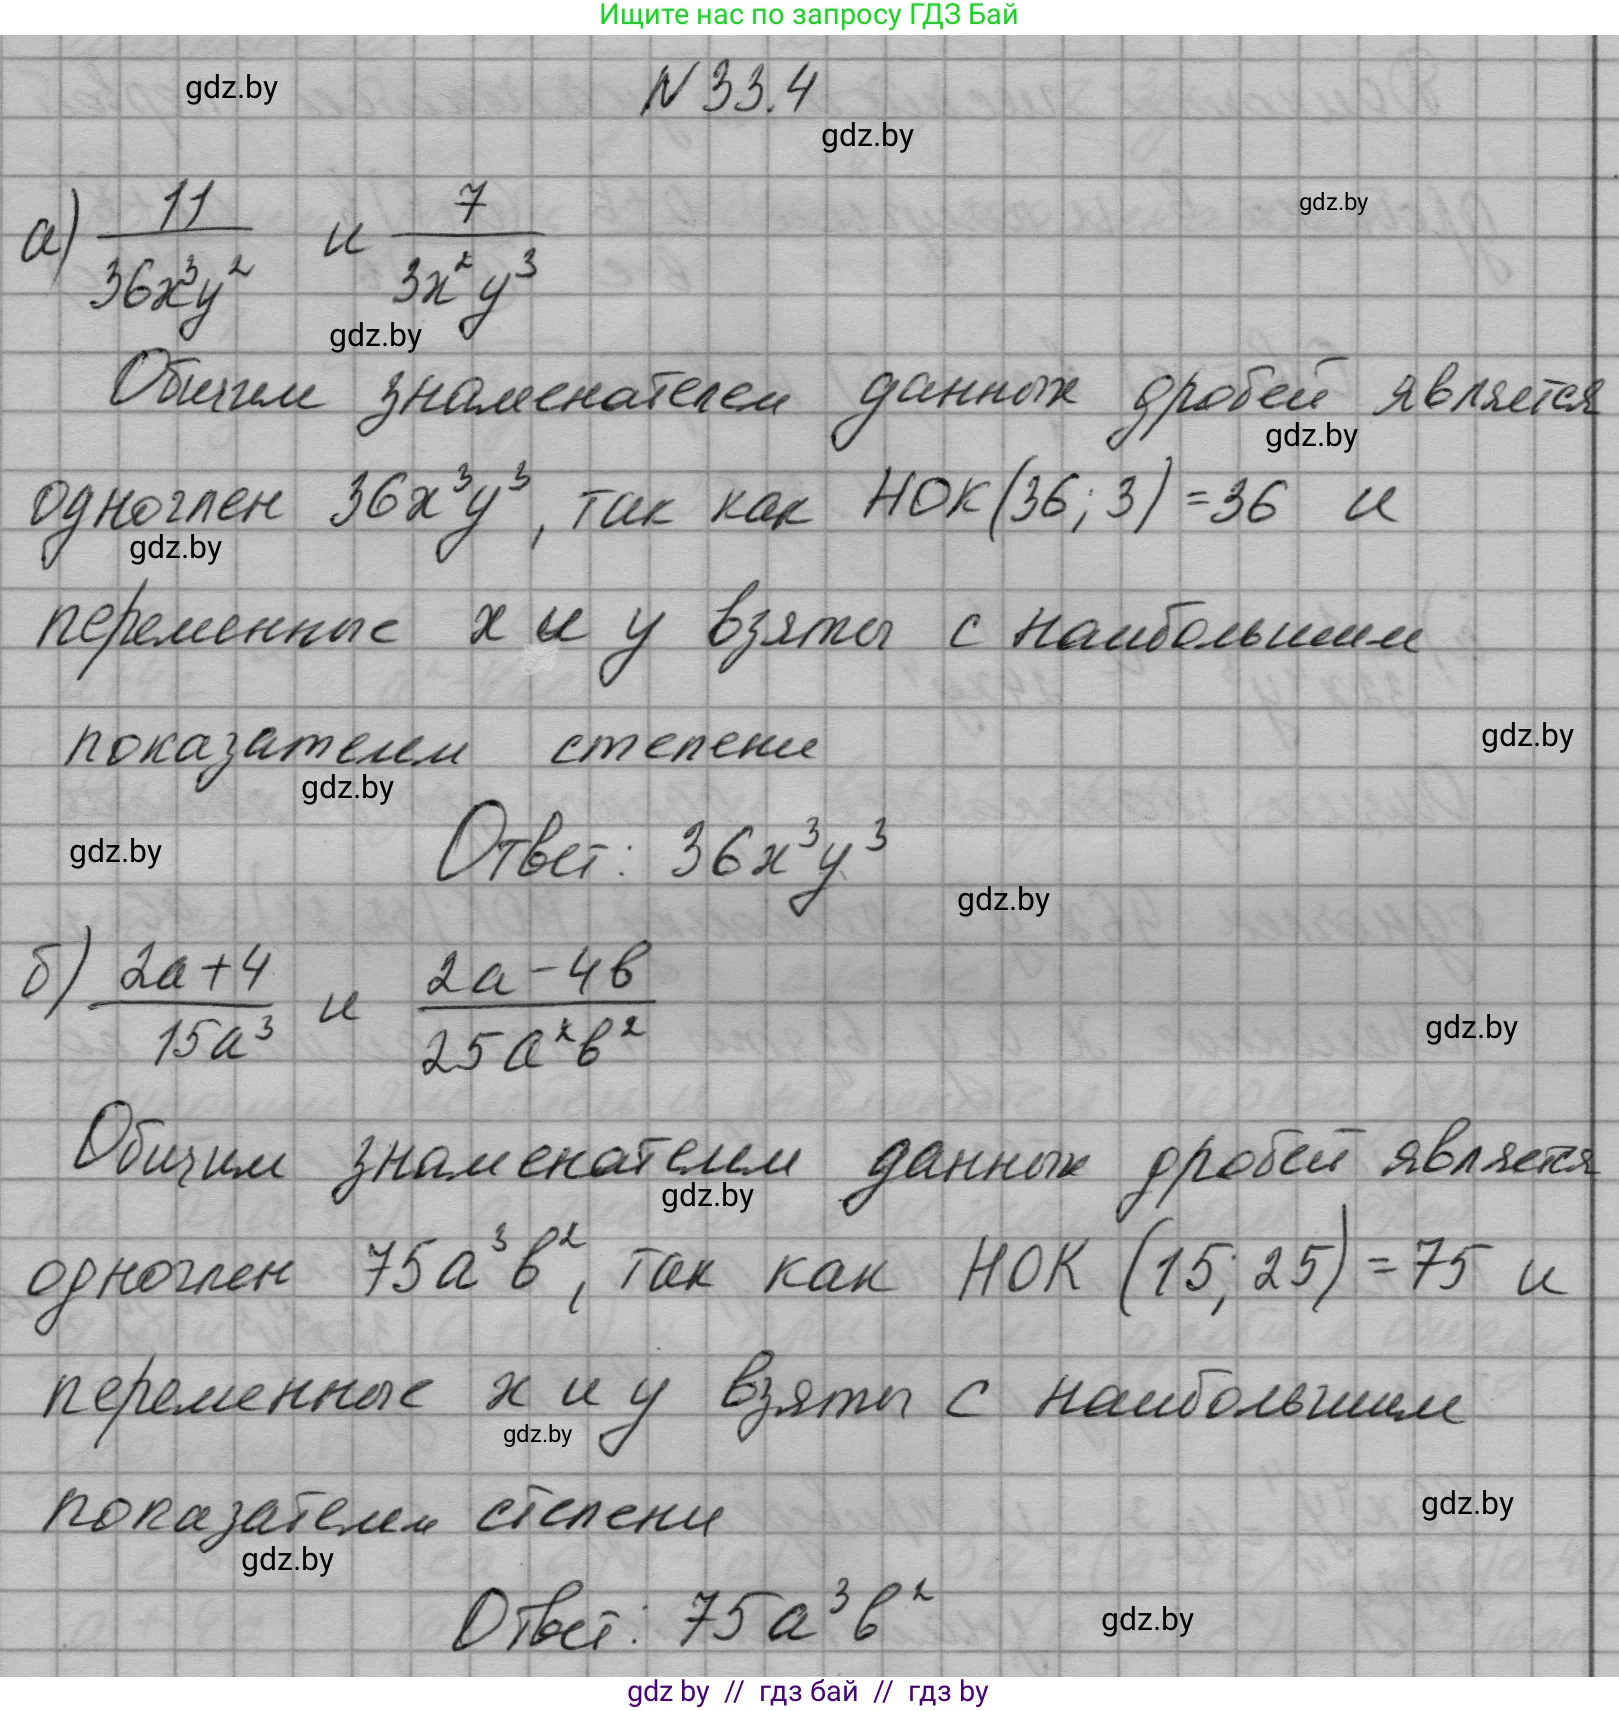 Ищите нас по запросу ГДЗ Бай
gdz.by
N 33.4
gdz.by
gdz.by
а) 11/36x³y² и 7/3x²y³
gdz.by
Общим знаменателем данных дробей является
gdz.by
одночлен 36x³y³, так как НОК(36; 3) = 36 и
gdz.by
переменные x и y взяты с наибольшим
gdz.by
показателем степени
gdz.by
gdz.by
Ответ: 36x³y³
gdz.by
б) 2a+4/15a³ и 2a-4b/25a²b²
gdz.by
Общим знаменателем данных дробей является
gdz.by
одночлен 75a³b², так как НОК (15; 25) = 75 и
переменные x и y взяты с наибольшим
gdz.by
показателем степени
gdz.by
gdz.by
Ответ: 75a³b²
gdz.by
gdz by // гдз бай // гдз by